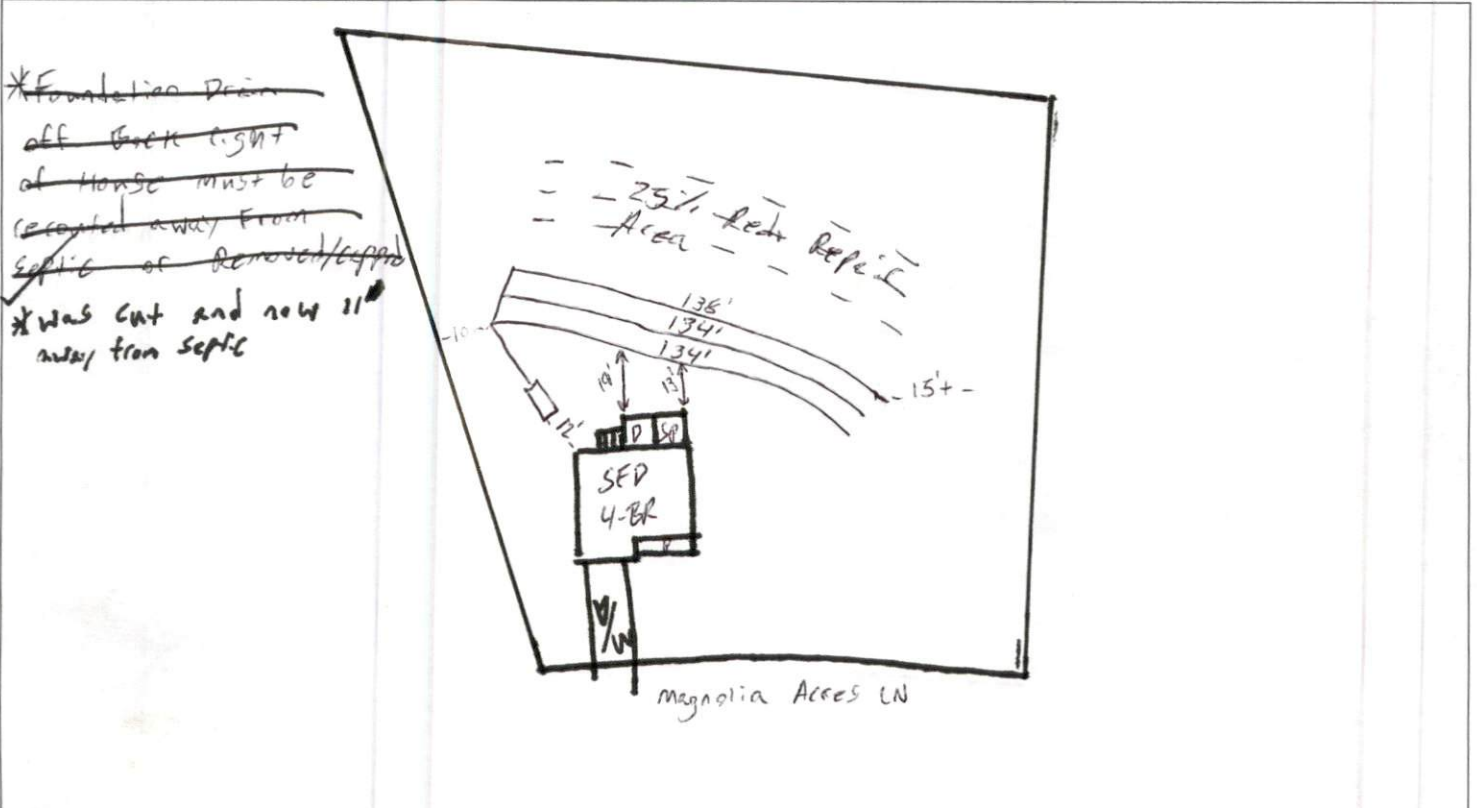 *Foundation Drain
off Back right
of House must be
rerouted away From
Septic or Removed/capped
*was cut and now 11"
away from septic
25% Red. Repair
Area
138'
134'
134'
-10-
19'
13'
-15'+-
12'
D
SP
SFD
4-BR
P
D/W
Magnolia Acres LN